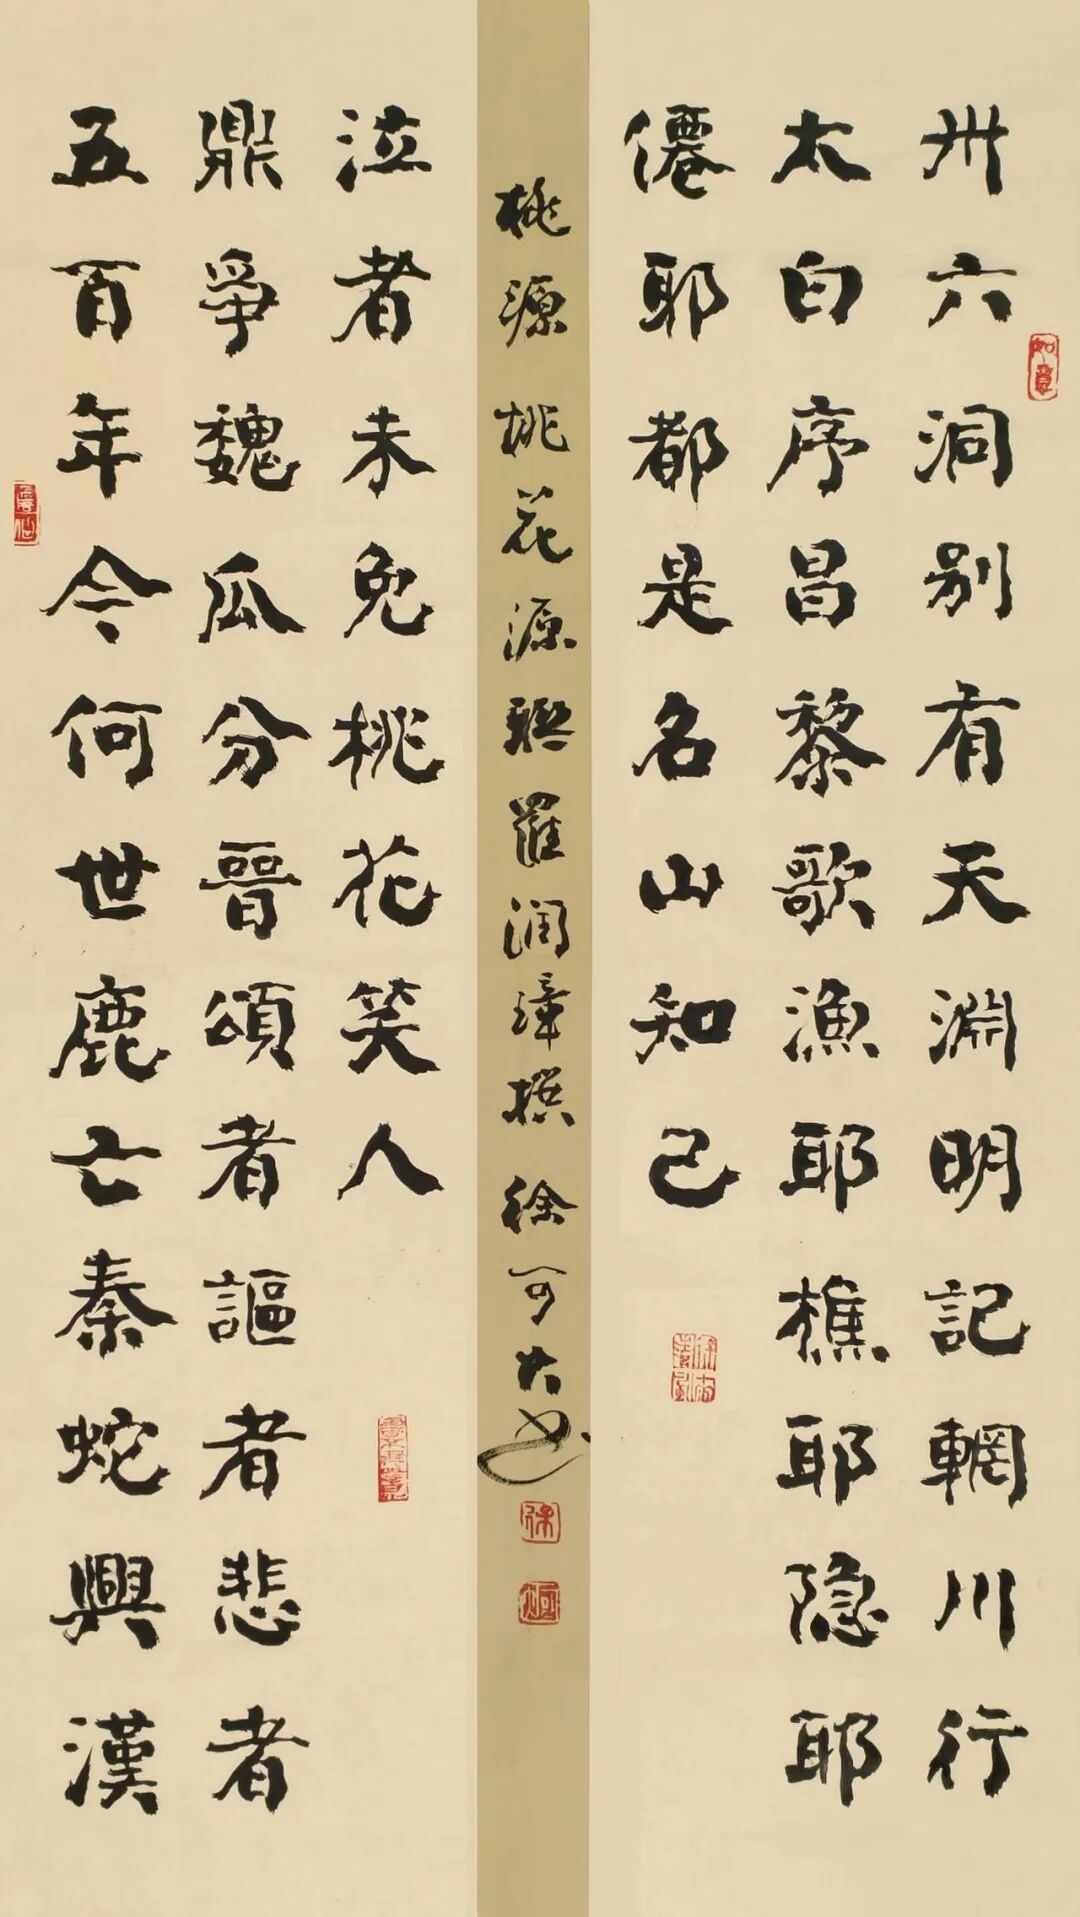 卅六洞别有天淵明記輞川行
太白序昌黎歌漁耶樵耶隐耶
僊耶都是名山知己
五百年今何世鹿亡秦蛇興漢
鼎爭魏瓜分晉頌者謳者悲者
泣者未免桃花笑人
桃源桃花源聯羅潤璋撰 徐可大书
如意